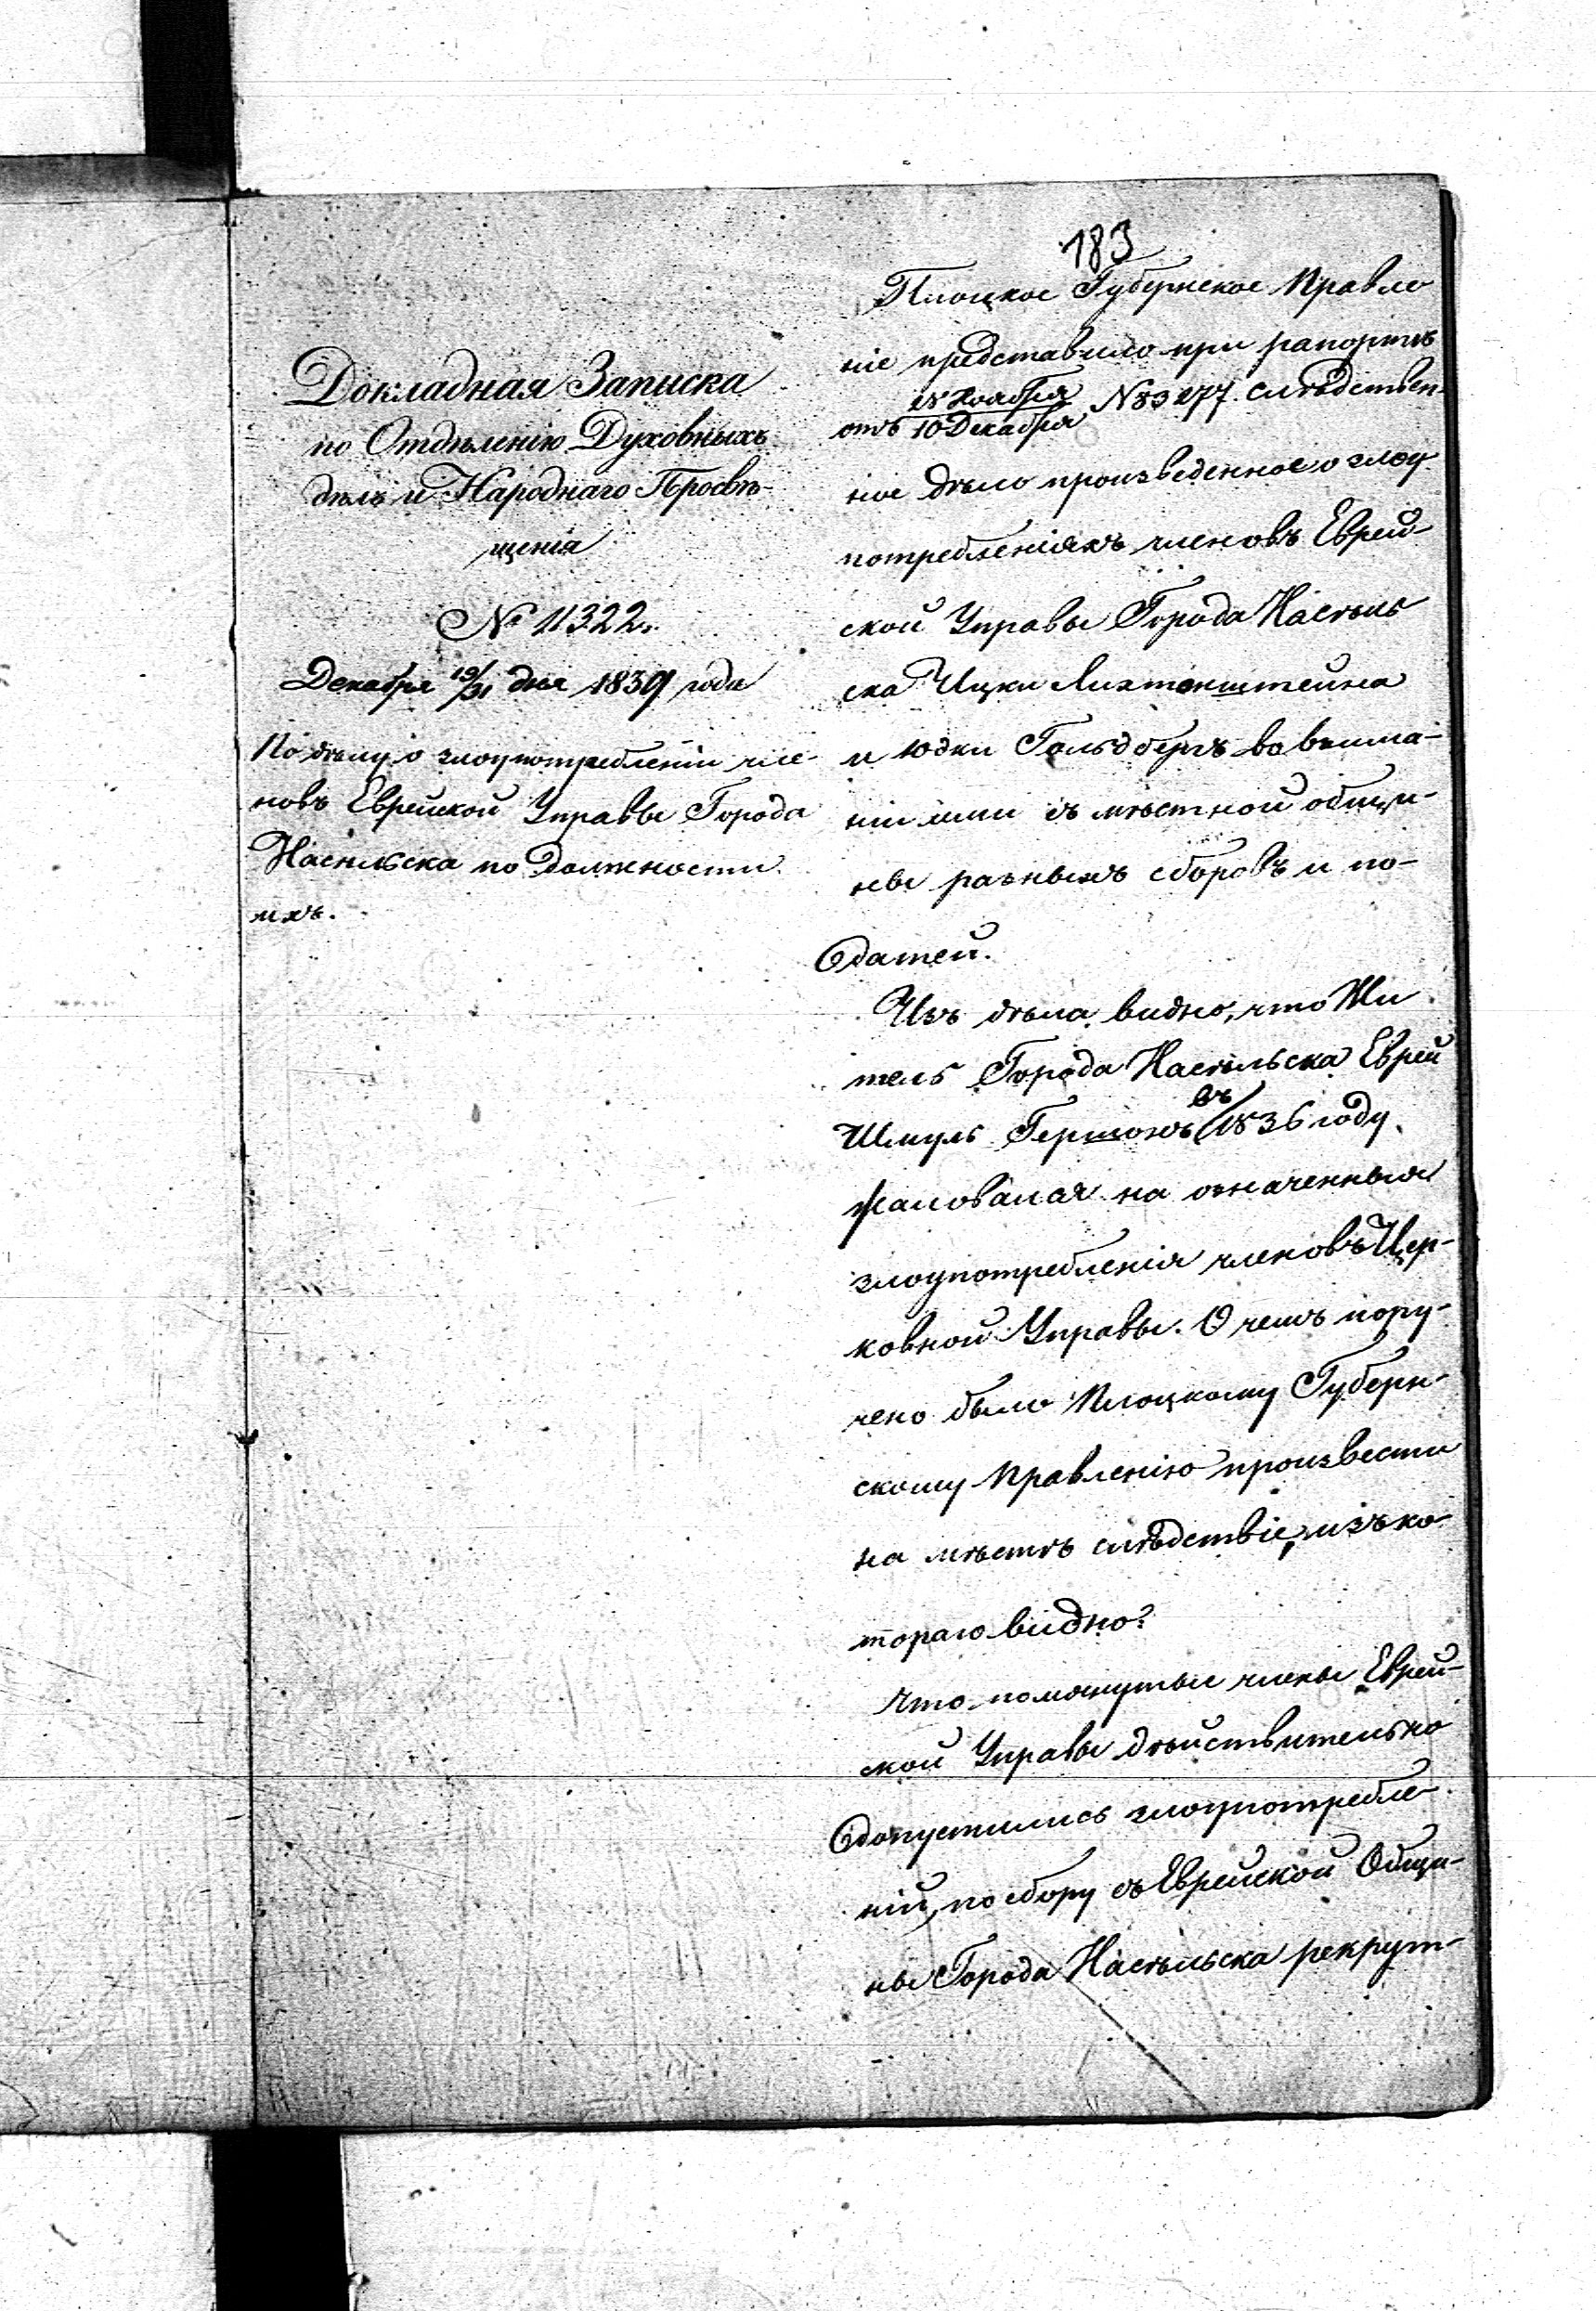 183
Докладная Записка
по Отдѣленію Духовныхъ
дѣлъ и Народнаго Просвѣ-
щенія
№ 11322.
Декабря 19/31 дня 1839 года
По дѣлу о злоупотребленіи чле-
новъ Еврейской Управы Города
Насѣльска по должности
ихъ.
Плоцкое Губернское Правле
ніе представило при рапортѣ
отъ 28 Ноября / 10 Декабря № 83277. слѣдствен-
ное дѣло произведенное о злоу
потребленіяхъ членовъ Еврей-
ской Управы Города Насѣль
ска Ицки Лихтенштейна
и Юдки Гольдбергъ во взима-
ніи ими съ мѣстной общи-
ны разныхъ сборовъ и по-
датей.
Изъ дѣла видно, что Жи
тель Города Насѣльска Еврей
Шмуль Гершонъ въ 1836 году
жаловался на означенныя
злоупотребленія членовъ Цер-
ковной Управы. О чемъ пору-
чено было Плоцкому Губерн-
скому Правленію произвести
на мѣстѣ слѣдствіе, изъ ко-
тораго видно:
Что помянутые члены Еврей-
ской Управы дѣйствительно
допустились злоупотребле-
ній, по сбору съ Еврейской Общи-
ны Города Насѣльска рекрут-